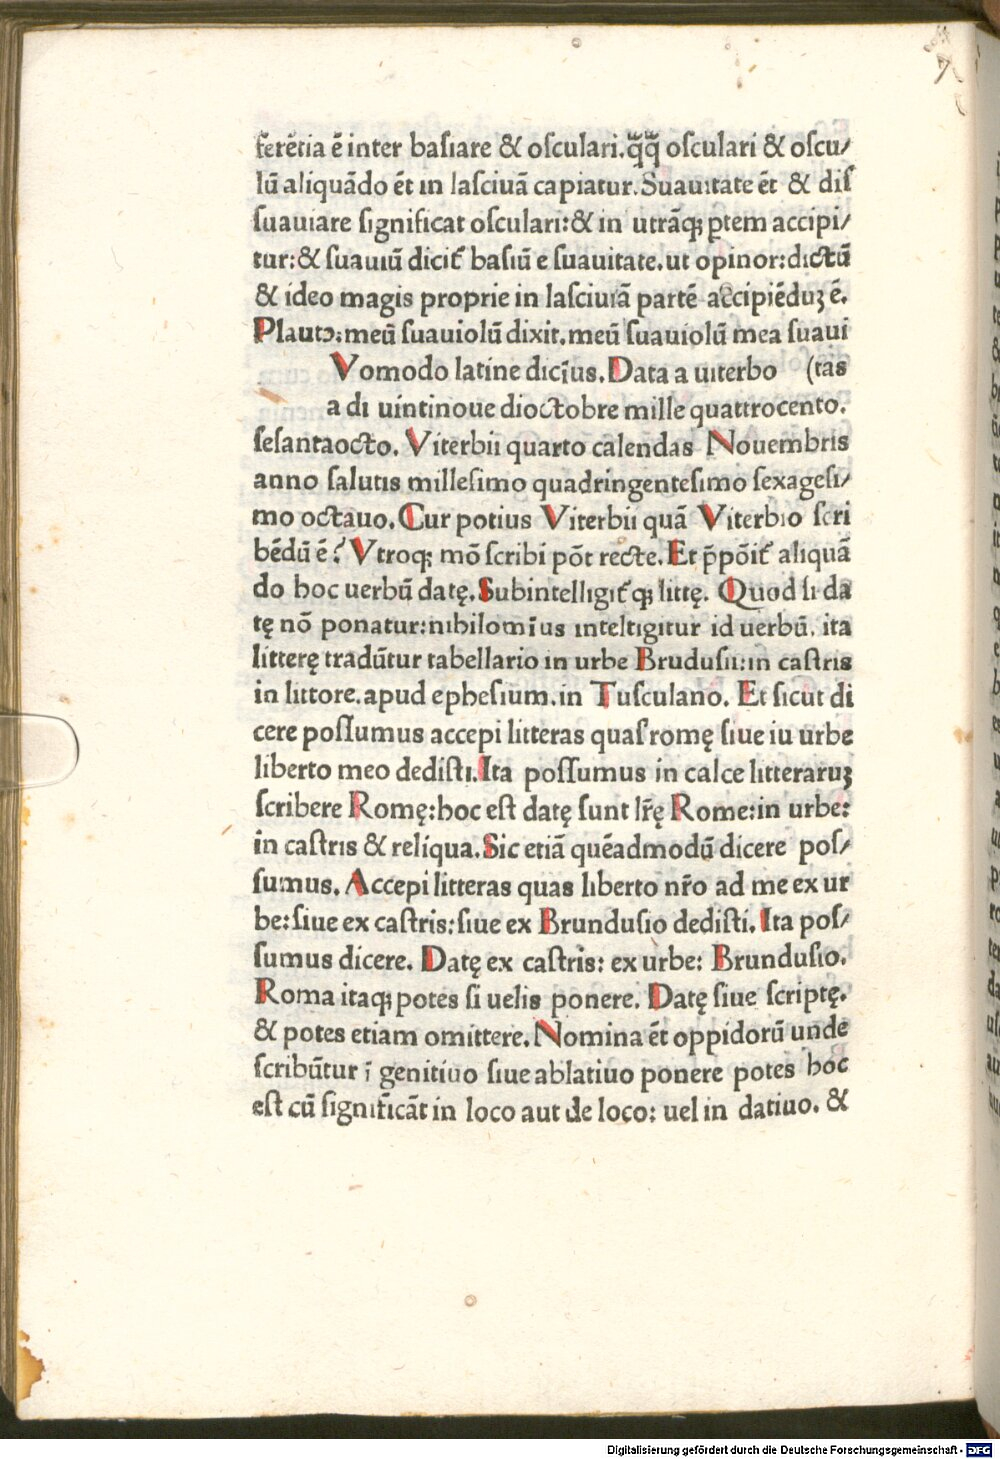 ferētia ē inter basiare & oſculari.q̄q̄ oſculari & oſcu/
lū aliquādo ēt in laſciuā capiatur.Suauitate ēt & diſ
ſuauiare ſignificat oſculari:& in utrāqꝫ ptem accipi/
tur:& ſuauiū dicit̄ baſiū e ſuauitate.ut opinor:dictū
& ideo magis proprie in laſciuiā partē accipiēduꝫ ē.
Plautꝰ:meū ſuauiolū dixit.meū ſuauiolū mea ſuaui
Vomodo latine dicīus.Data a uiterbo (tas
a di uintinoue dioctobre mille quattrocento.
ſeſantaocto.Viterbii quarto calendas Nouembris
anno ſalutis milleſimo quadringenteſimo ſexageſi/
mo octauo.Cur potius Viterbii quā Viterbio ſcri
bēdū ē? Vtroqꝫ mō ſcribi pōt recte.Et p̄pōit̄ aliquā
do hoc uerbū datę.Subintelligit̄ qꝫ littę. Quod ſi da
tę nō ponatur:nihilomīus inteltigitur id uerbū. ita
litterę tradūtur tabellario in urbe Bruduſii:in caſtris
in littore.apud epheſium.in Tuſculano. Et ſicut di
cere poſſumus accepi litteras quaſ romę ſiue iu urbe
liberto meo dediſti.Ita poſſumus in calce litteraruꝫ
ſcribere Romę:hoc eſt datę ſunt lr̄ę Rome:in urbe:
in caſtris & reliqua.Sic etiā quēadmodū dicere poſ/
ſumus. Accepi litteras quas liberto nr̄o ad me ex ur
be:ſiue ex caſtris:ſiue ex Brunduſio dediſti.Ita poſ/
ſumus dicere. Datę ex caſtris: ex urbe: Brunduſio.
Roma itaqꝫ potes ſi uelis ponere. Datę ſiue ſcriptę.
& potes etiam omittere.Nomina ēt oppidorū unde
ſcribūtur ī genitiuo ſiue ablatiuo ponere potes hoc
eſt cū ſignificāt in loco aut de loco: uel in datiuo. &
Digitalisierung gefördert durch die Deutsche Forschungsgemeinschaft - DFG